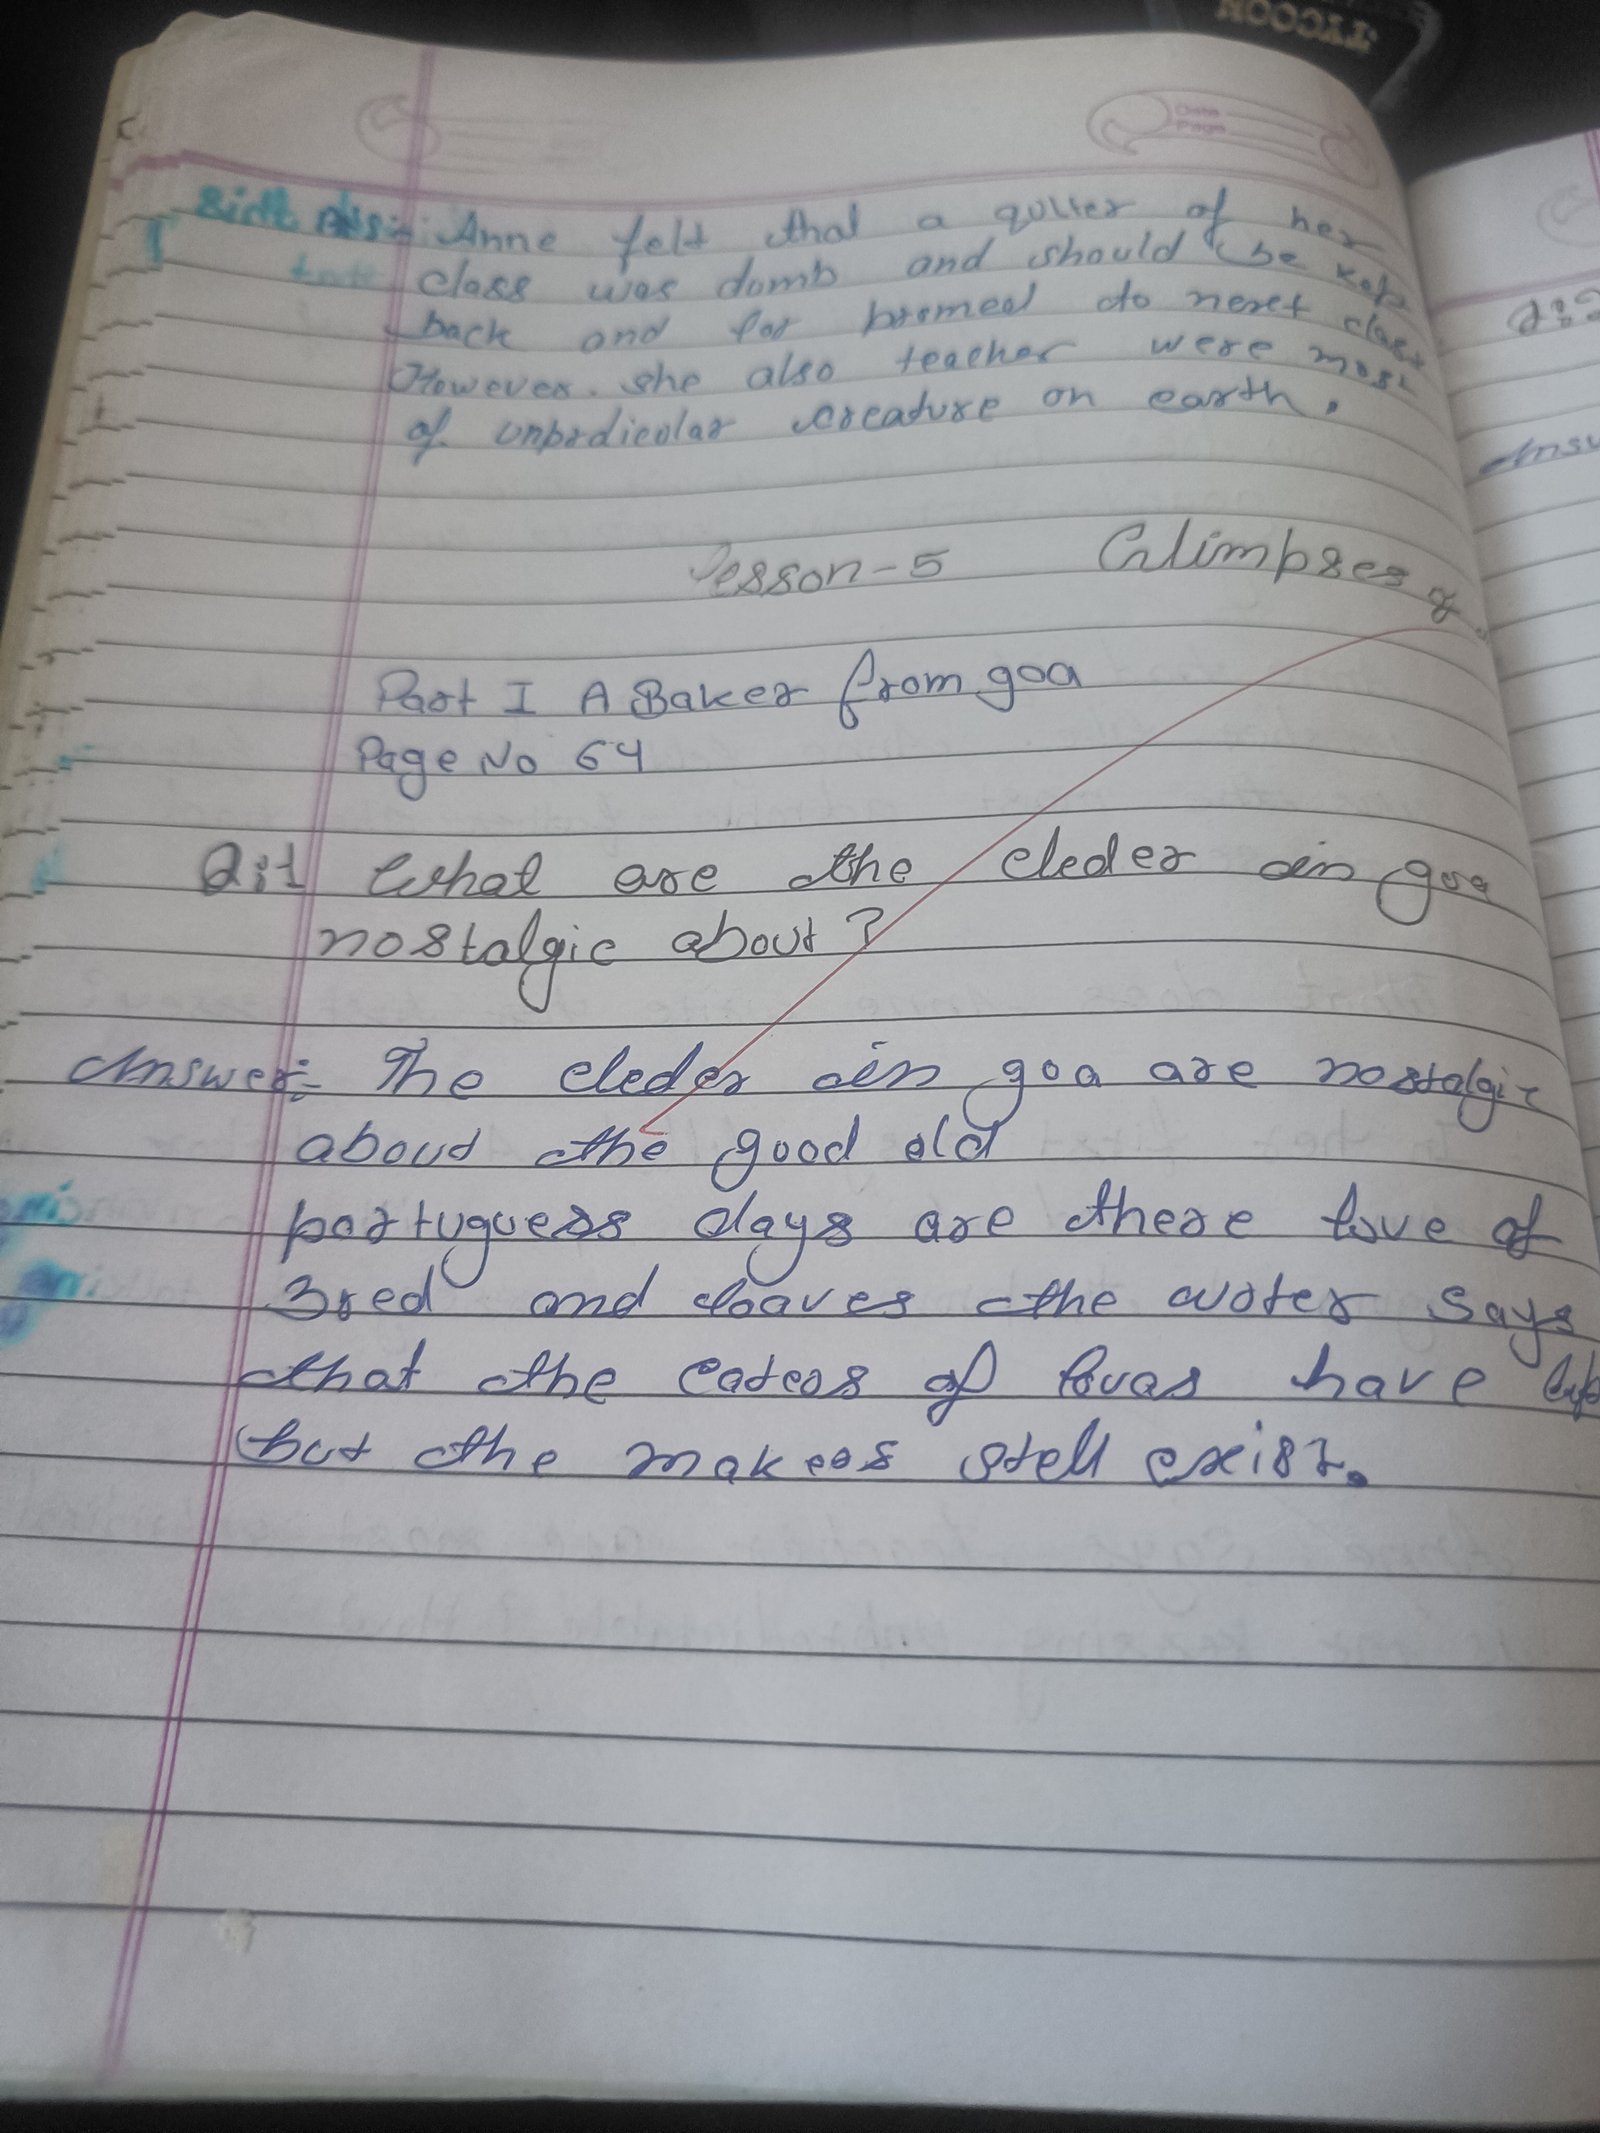 TYCOON
Date
Page
Anne felt that a quter of her
class was domb and should be kep
back and for bromed to nenet class
However. she also teacher were most
of unprdicolar creature on earth.
Lesson-5 Glimpses of
Part I A Baker from goa
Page No 64
Q:1 What are the eleder in goa
nostalgic about?
Answer:- The eleder in goa are nostalgic
about the good old
portuguess days are there love of
Bred and loaves the woter says
that the eateos of lovas have
but the makeos stell exist.
Answ